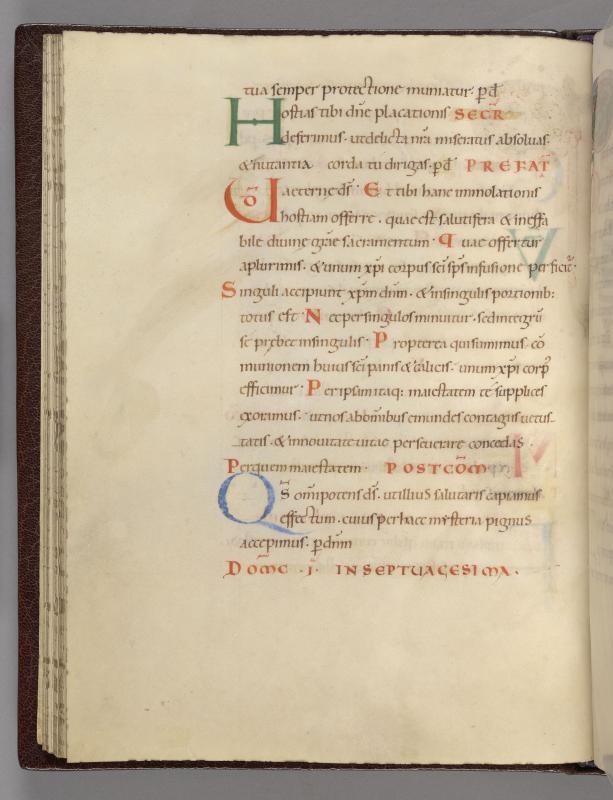 tua semper protectione muniatur· p̄d̄
Hostias tibi dn̄e placationis SECR̄
deferimus· ut delicta nr̄a miseratus absoluas·
& nutantia corda tu dirigas· p̄d̄ PREFAT̄
UŌ aeterne ds̄· Et tibi hanc immolationis
hostiam offerre· quae est salutifera & ineffa
bile divine gr̄ae sacramentum· Quae offertur
a plurimis· & unum xp̄i corpus sc̄i sp̄s infusione perficit̄·
Singuli accipiunt xp̄m dn̄m· & in singulis portionib:
totus est· Nec per singulos minuitur· sed integrū
se prȩbet in singulis· Propterea qui sumimus cō
munionem huius sc̄i panis & calicis· unum xp̄i corp̄
efficimur· Per ipsum itaq: maiestatem te supplices
exoramus· ut nos ab om̄ibus emundes contagiis uetus
tatis· & in nouitate uitae perseuerare concedas·
Per quem maiestatem· POSTCŌM
Qs̄ om̄ipotens ds̄· ut illius salutaris capiamus
effectum· cuius per haec mysteria pignus
accepimus· p̄ dn̄m
DOM̄C· I· IN SEPTUAGESIMA·